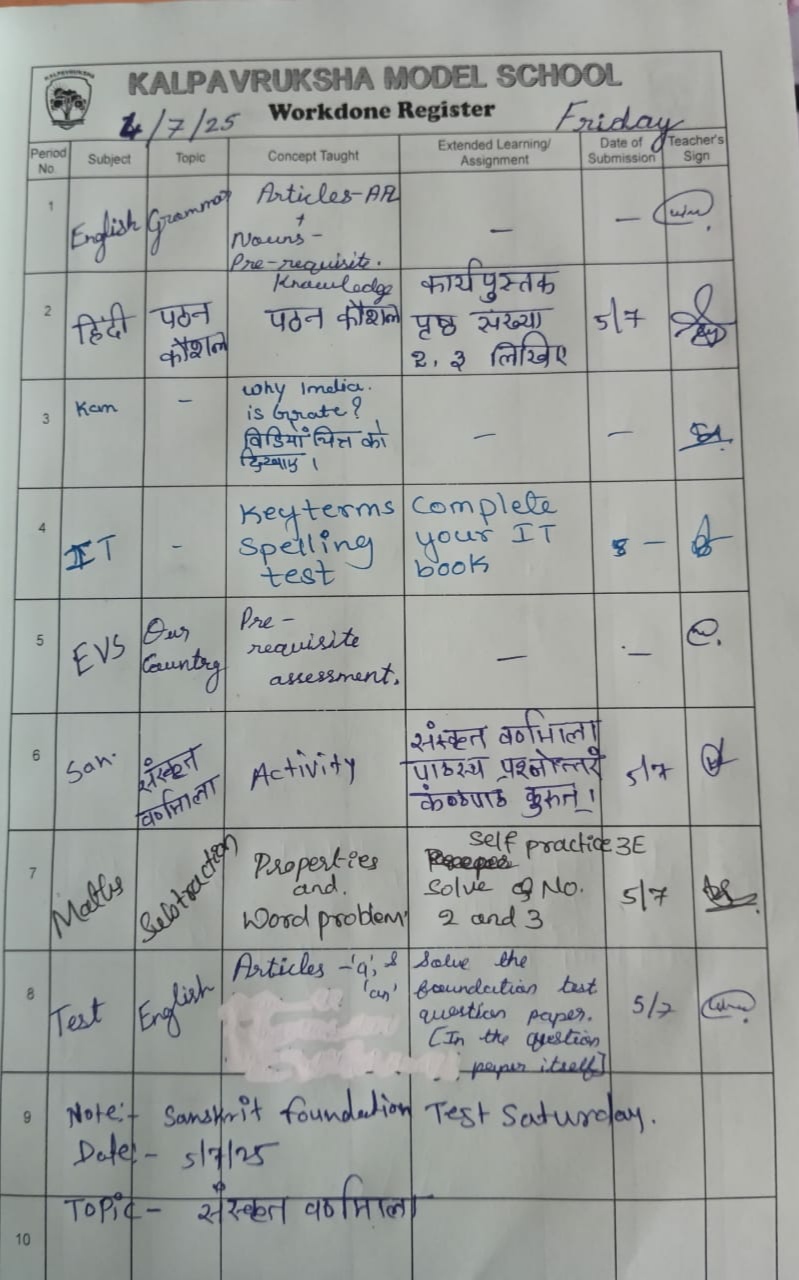 KALPAVRUKSHA MODEL SCHOOL
Workdone Register
4/7/25 Friday
Period No. Subject Topic Concept Taught Extended Learning/ Assignment Date of Submission Teacher's Sign
1 English Grammar Articles-AR + Nouns - Pre-requisite. Knowledge – –
2 हिंदी पठन कौशल पठन कौशल कार्यपुस्तक पृष्ठ संख्या 2, 3 लिखिए 5/7
3 Kan – why India. is Grate? विडियो चित्त को दिखाए। – –
4 IT - Keyterms spelling test Complete your IT book –
5 EVS Our Country Pre-requisite assessment. – –
6 San. संस्कृत वर्णमाला Activity संस्कृत वर्णमाला पाठस्य प्रश्नोत्तरं कंठपाठ कुरुत। 5/7
7 Maths Subtraction Properties and. Word problem Self practice 3E Solve Q No. 2 and 3 5/7
8 Test English Articles - 'a', & 'an' Solve the foundation test question paper. [In the question paper itself] 5/7
9 Note:- Sanskrit foundation Test Saturday.
Date:- 5/7/25
Topic - संस्कृत वर्णमाला
10